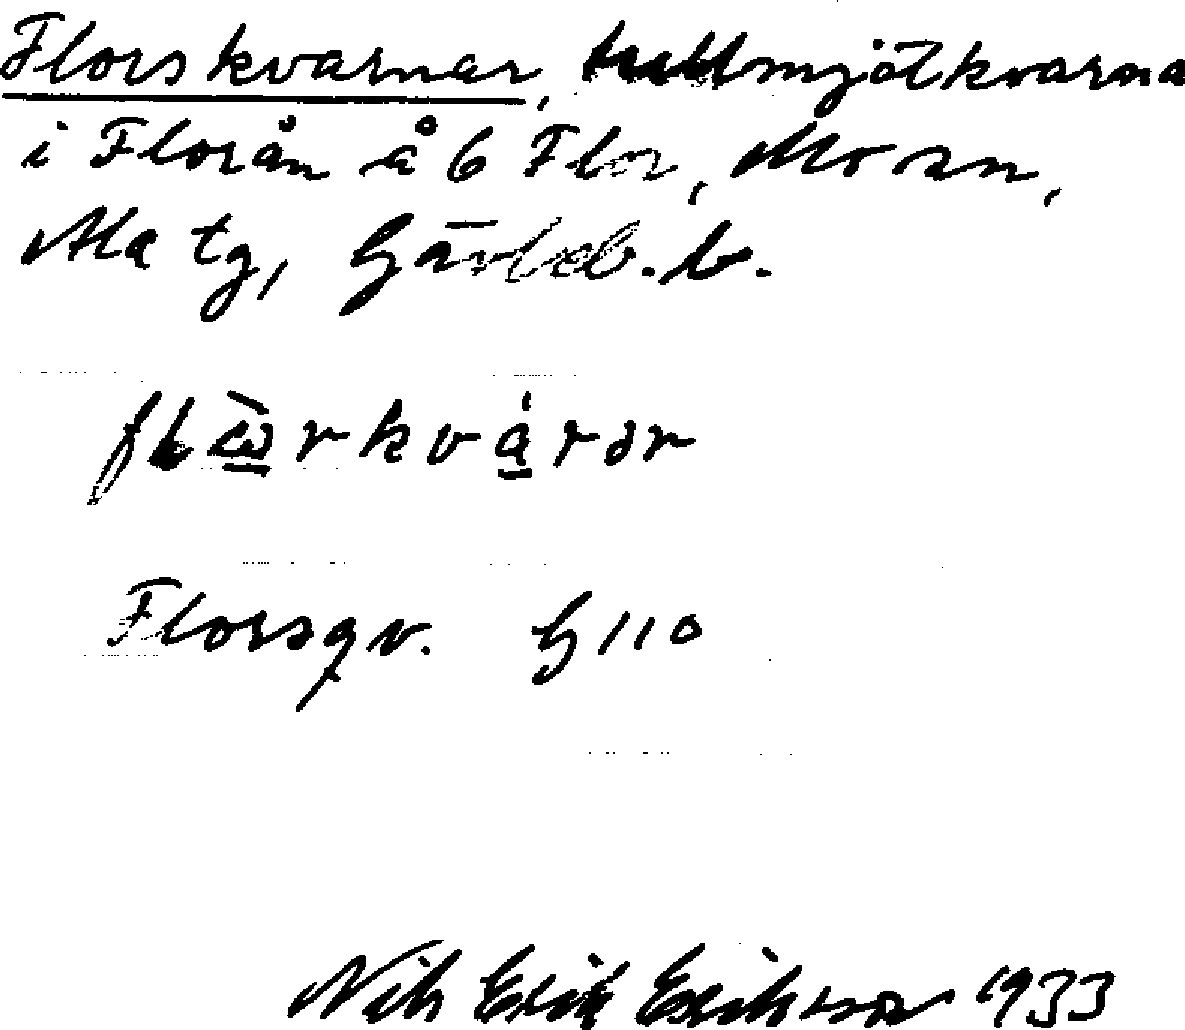 Florskvarnar, tullmjölkvarna
i Florån å 6 Flor, Moran,
Ala tg, Gävleb. l.
flὼ̲rkvá̲rər
Florsqv. G 110
Nils Erik Eriksson 1933